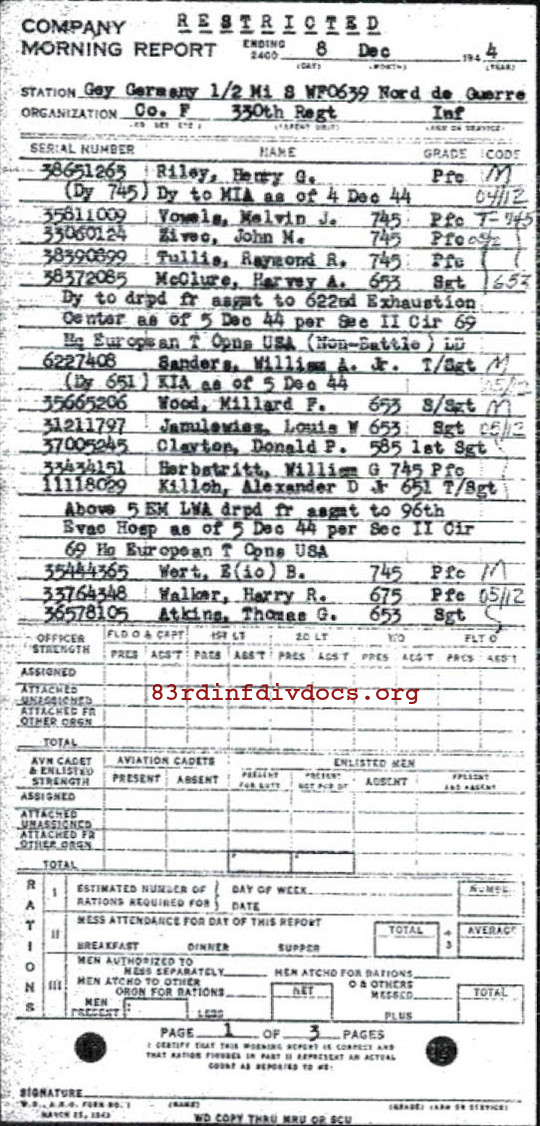 RESTRICTED
COMPANY
MORNING REPORT ENDING 2400 8 Dec 1944
(DAY) (MONTH) (YEAR)
STATION Gey Germany 1/2 Mi S WF0639 Nord de Guerre
ORGANIZATION Co. F 330th Regt Inf
SERIAL NUMBER NAME GRADE CODE
38651263 Riley, Henry G. Pfc M
(Dy 745) Dy to MIA as of 4 Dec 44 04/12
35811009 Vowels, Melvin J. 745 Pfc T-745
33060124 Zivec, John M. 745 Pfc
38390899 Tullis, Raymond R. 745 Pfc
38372085 McClure, Harvey A. 653 Sgt 653
Dy to drpd fr asgmt to 622nd Exhaustion
Center as of 5 Dec 44 per Sec II Cir 69
Hq European T Opns USA (Non-Battle) LD
6227408 Sanders, William A. Jr. T/Sgt M
(Dy 651) KIA as of 5 Dec 44 05/12
35665206 Wood, Millard F. 653 S/Sgt M
31211797 Janulewicz, Louis W 653 Sgt 05/12
37005245 Clayton, Donald P. 585 1st Sgt
33434151 Herbstritt, William G 745 Pfc
11118029 Killoh, Alexander D Jr 651 T/Sgt
Above 5 EM LWA drpd fr asgmt to 96th
Evac Hosp as of 5 Dec 44 per Sec II Cir
69 Hq European T Opns USA
35444365 Wert, E(io) B. 745 Pfc M
33764348 Walker, Harry R. 675 Pfc 05/12
36578105 Atkins, Thomas G. 653 Sgt
OFFICER STRENGTH FLD O & CAPT 1ST LT 2D LT W/O FLT O
PRES ABS'T PRES ABS'T PRES ABS'T PRES ABS'T PRES ABS'T
ASSIGNED
ATTACHED UNASSIGNED
ATTACHED FR OTHER ORGN
TOTAL
83rdinfdivdocs.org
AVN CADET & ENLISTED STRENGTH AVIATION CADETS ENLISTED MEN
PRESENT ABSENT PRESENT FOR DUTY PRESENT NOT FOR DY ABSENT PRESENT AND ABSENT
ASSIGNED
ATTACHED UNASSIGNED
ATTACHED FR OTHER ORGN
TOTAL
RATIONS
I ESTIMATED NUMBER OF RATIONS REQUIRED FOR DAY OF WEEK DATE NUMBER
II MESS ATTENDANCE FOR DAY OF THIS REPORT TOTAL ÷ 3 AVERAGE
BREAKFAST DINNER SUPPER
III MEN AUTHORIZED TO MESS SEPARATELY MEN ATCHD FOR RATIONS
MEN ATCHD TO OTHER ORGN FOR RATIONS NET O & OTHERS MESSED TOTAL
MEN PRESENT LESS PLUS
PAGE 1 OF 3 PAGES
I CERTIFY THAT THIS MORNING REPORT IS CORRECT AND
THAT RATION FIGURES IN PART II REPRESENT AN ACTUAL
COUNT AS REPORTED TO ME:
SIGNATURE
W.D., A.G.O. FORM NO. 1 (NAME) (GRADE) (ARM OR SERVICE)
MARCH 25, 1943
WD COPY THRU MRU OR SCU